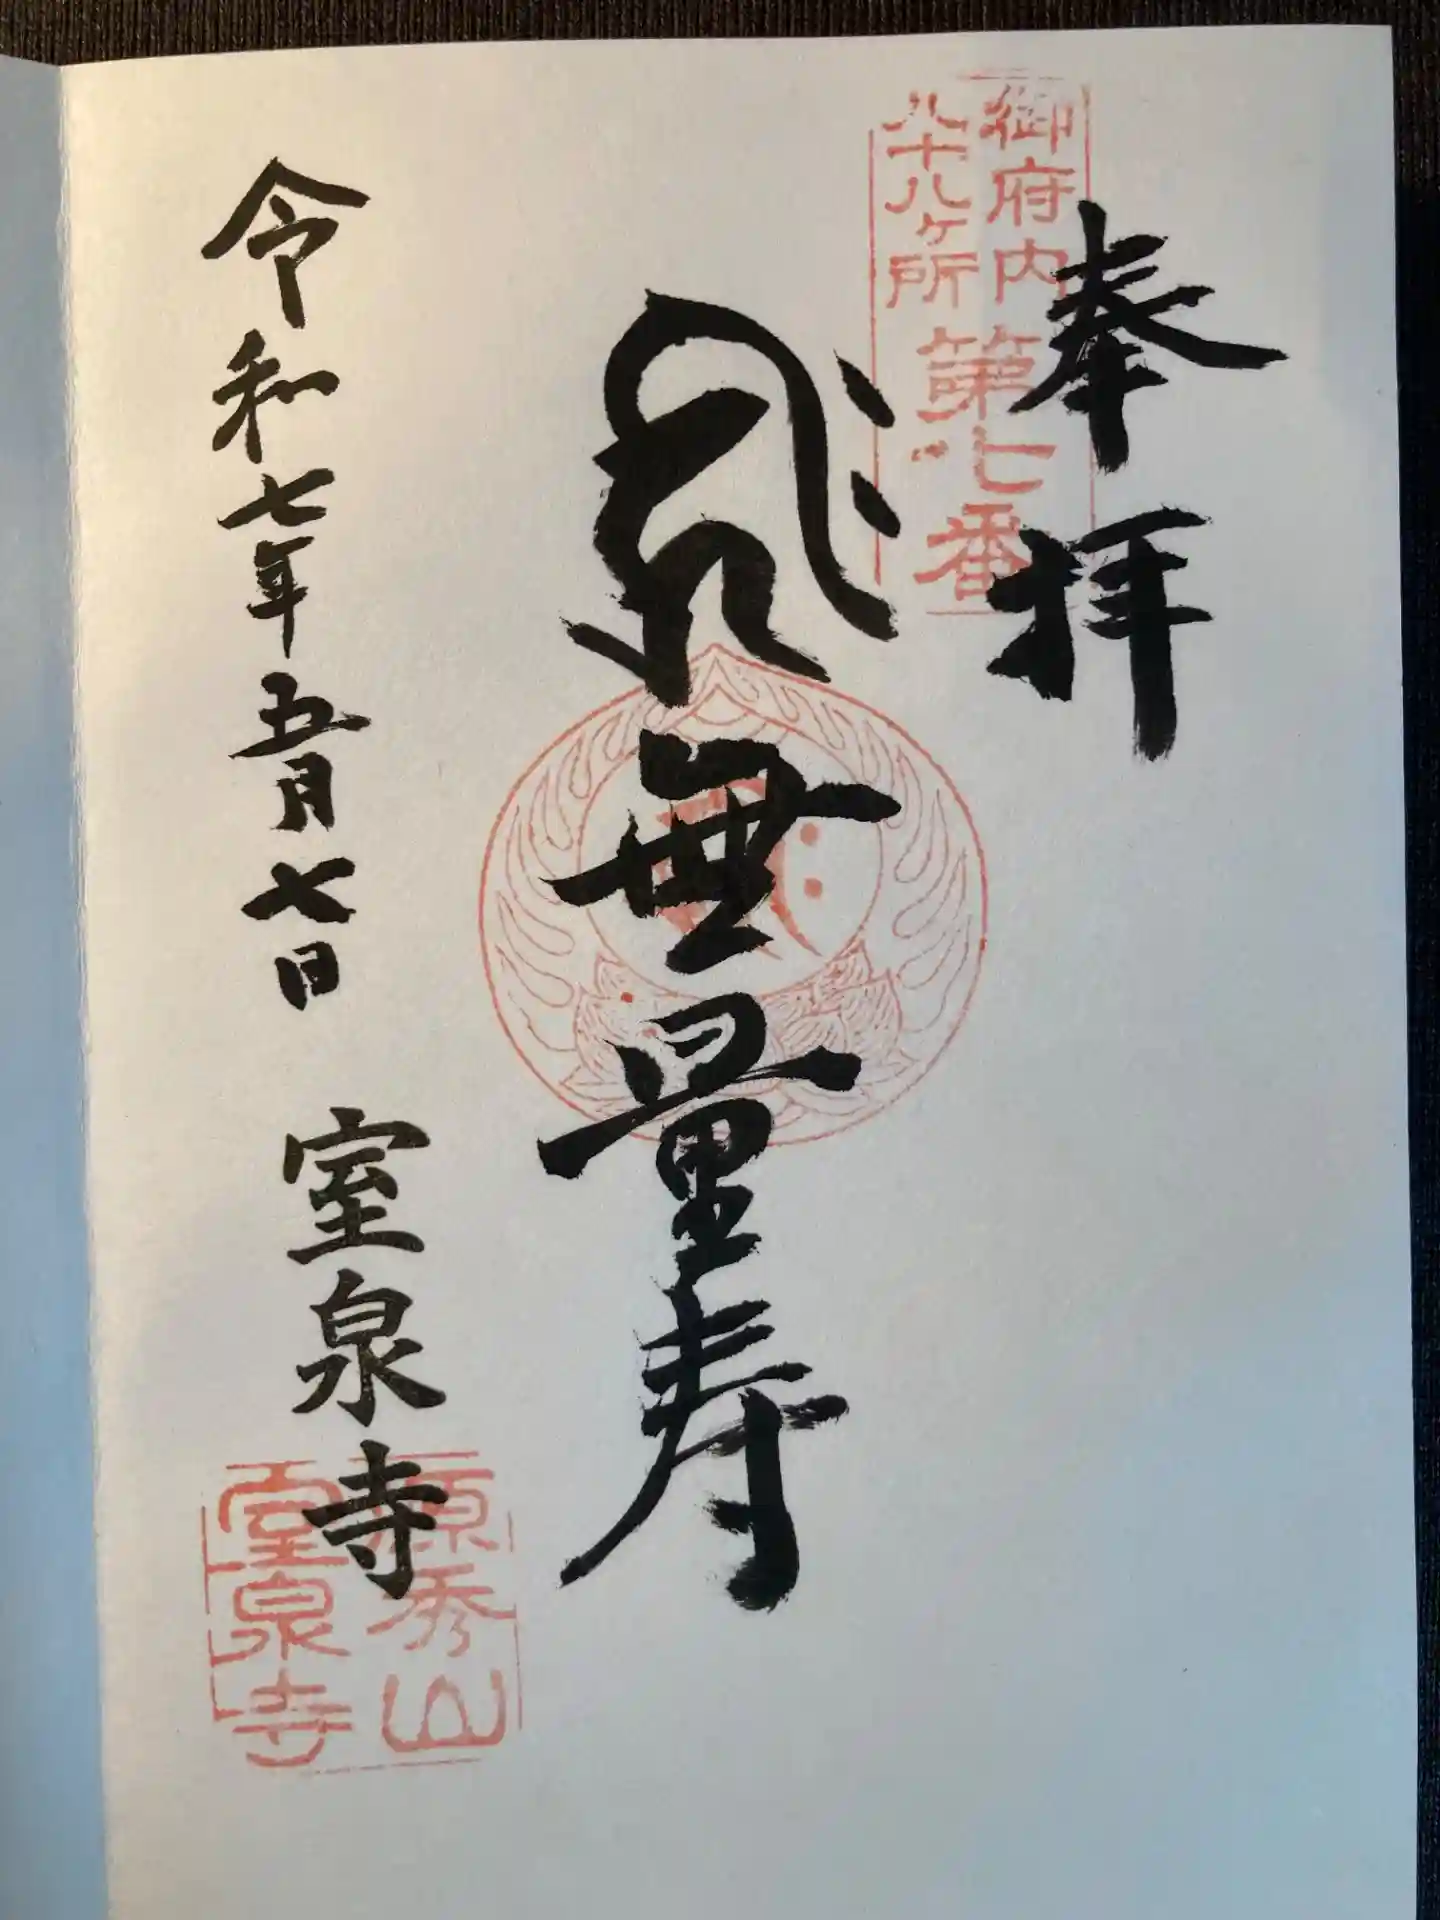 奉拝
御府内
八十八ヶ所
第七番
𑖮𑖿𑖨𑖱𑖾 無量寿
令和七年五月七日
室泉寺
源秀山
室泉寺